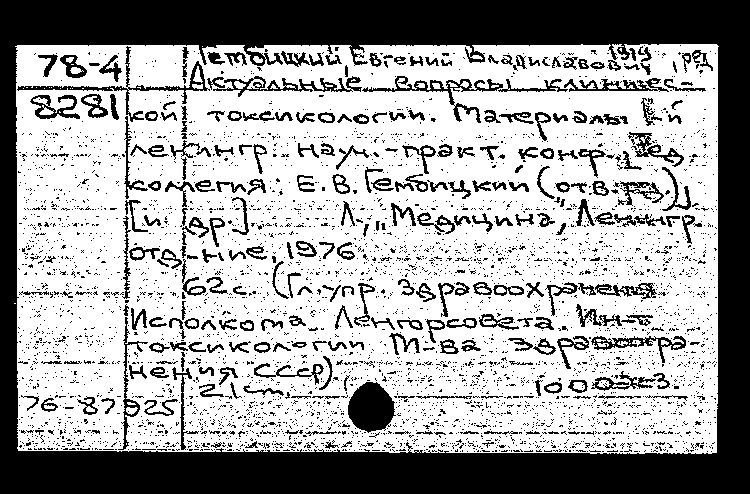 78-4 Гембицкий, Евгений Владиславович, 1919, ред
Актуальные вопросы клиничес-
8281 кой токсикологии. Материалы I-й
ленингр. науч.-практ. конф. [Ред.
коллегия: Е.В. Гембицкий (отв. ред.)
[и др.]. Л., „Медицина", Ленингр.
отд-ние, 1976.
62 с. (Гл. упр. здравоохранения
Исполкома Ленгорсовета. Ин-т
токсикологии М-ва здравоохра-
нения СССР).
21 см. 1000 экз.
76-87925